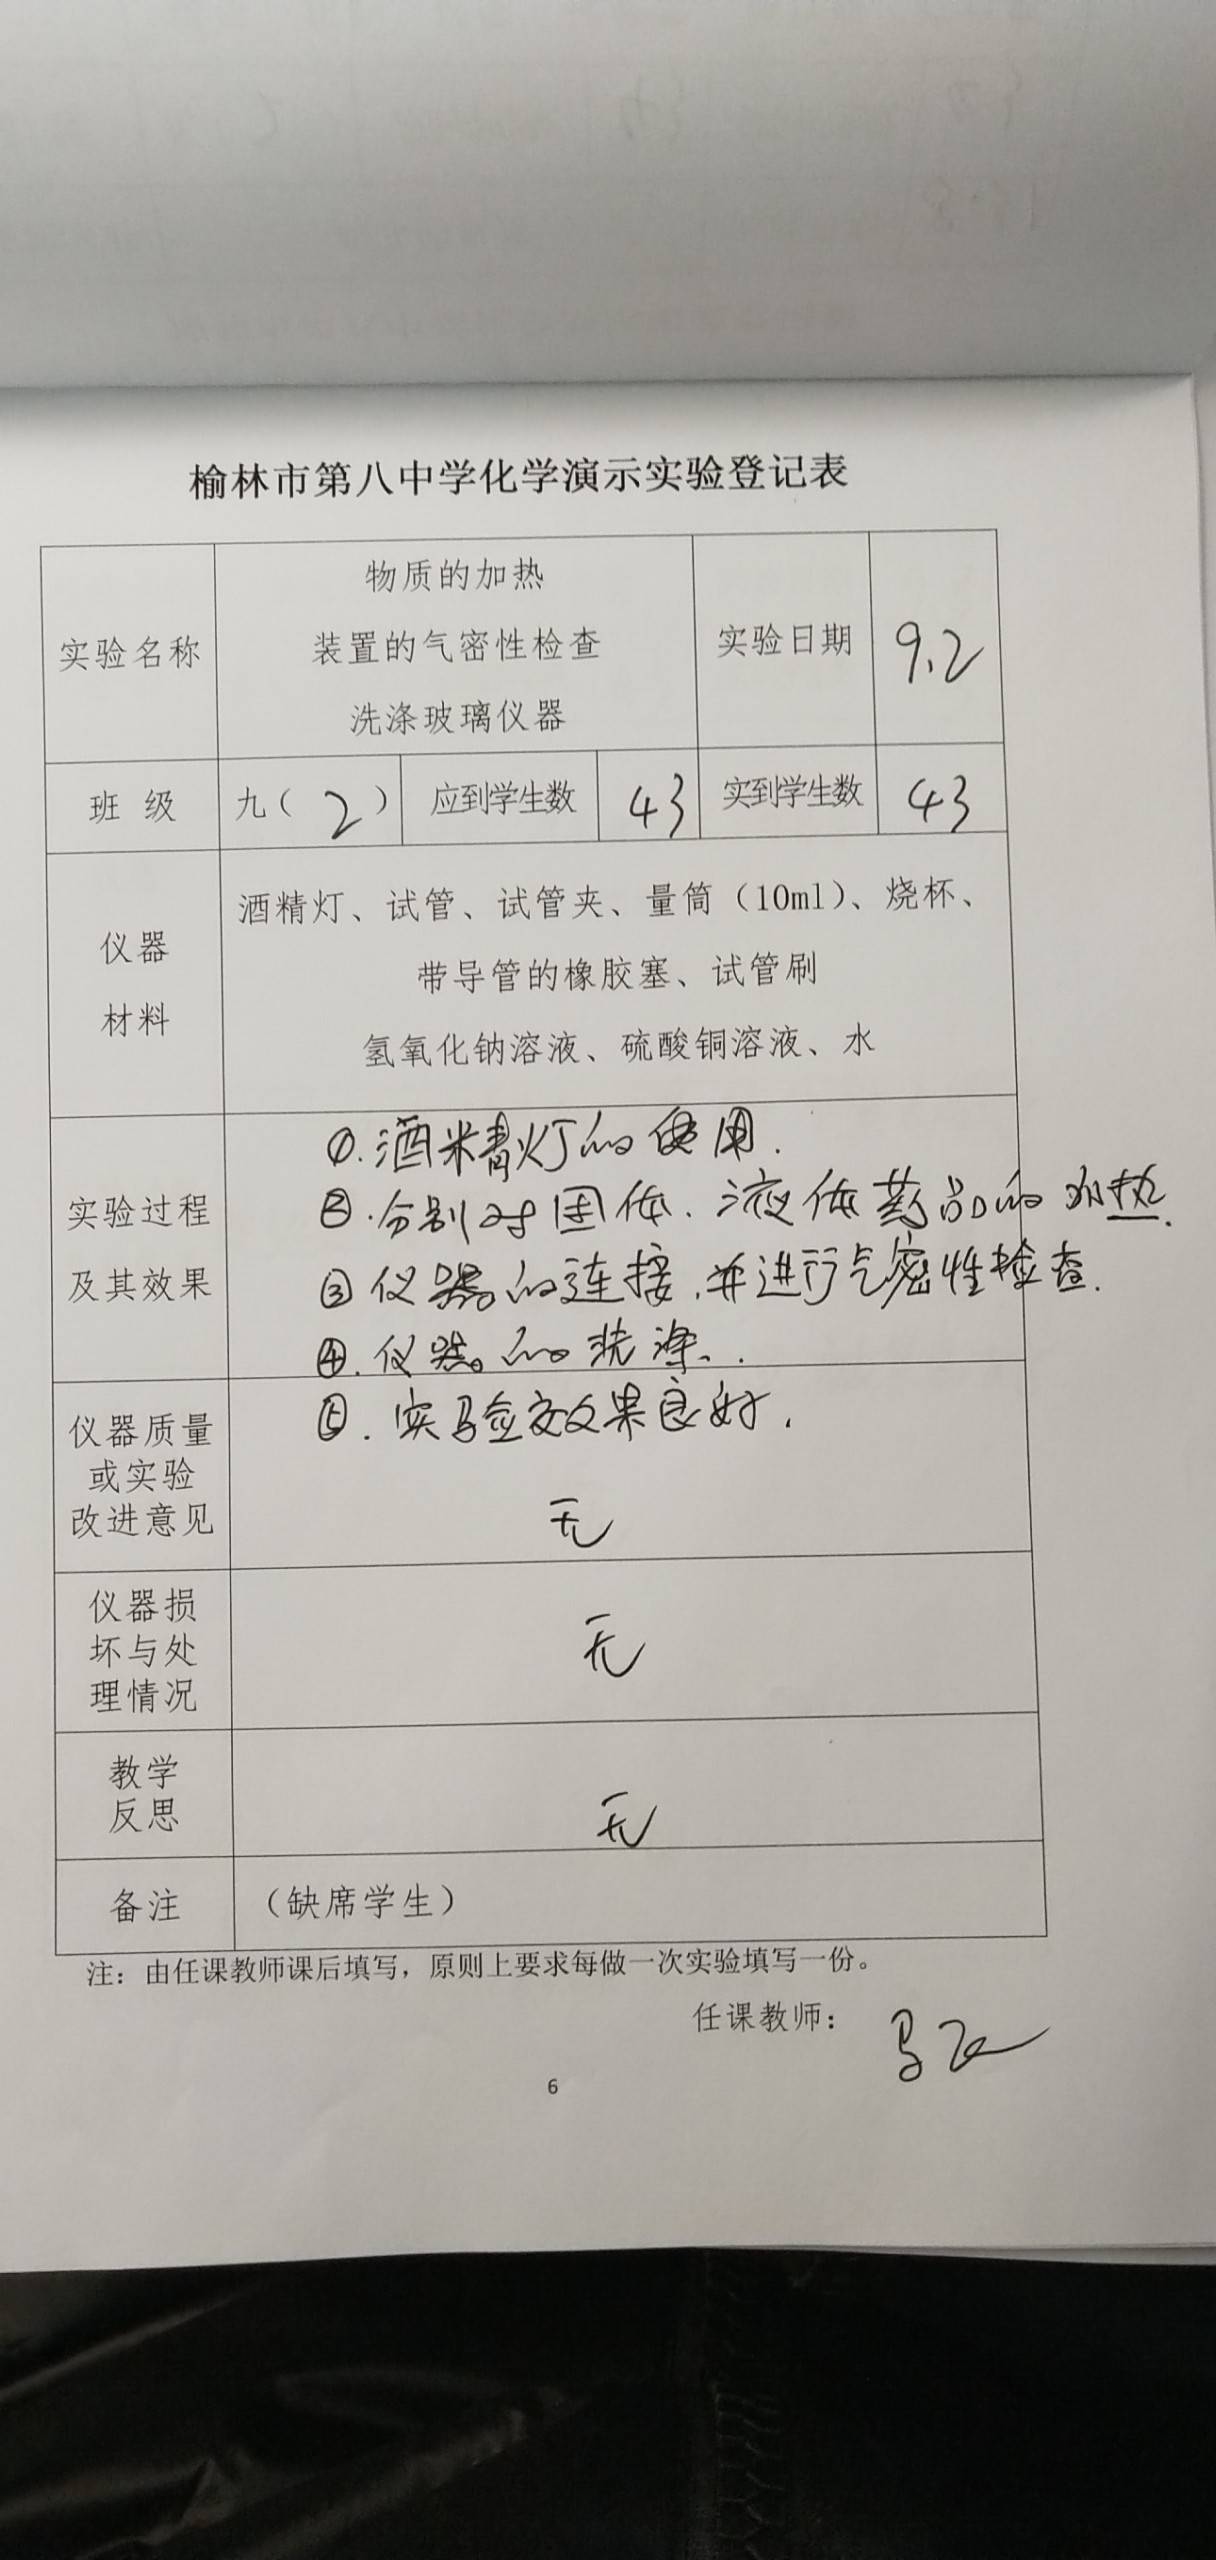 榆林市第八中学化学演示实验登记表
实验名称
物质的加热
装置的气密性检查
洗涤玻璃仪器
实验日期
9.2
班 级
九（2）
应到学生数
43
实到学生数
43
仪器
材料
酒精灯、试管、试管夹、量筒（10ml）、烧杯、
带导管的橡胶塞、试管刷
氢氧化钠溶液、硫酸铜溶液、水
实验过程
及其效果
①.酒精灯的使用.
②.分别对固体.液体药品的加热.
③仪器的连接,并进行气密性检查.
④.仪器的洗涤.
⑤.实验效果良好.
仪器质量
或实验
改进意见
无
仪器损
坏与处
理情况
无
教学
反思
无
备注
（缺席学生）
注：由任课教师课后填写，原则上要求每做一次实验填写一份。
任课教师：
6